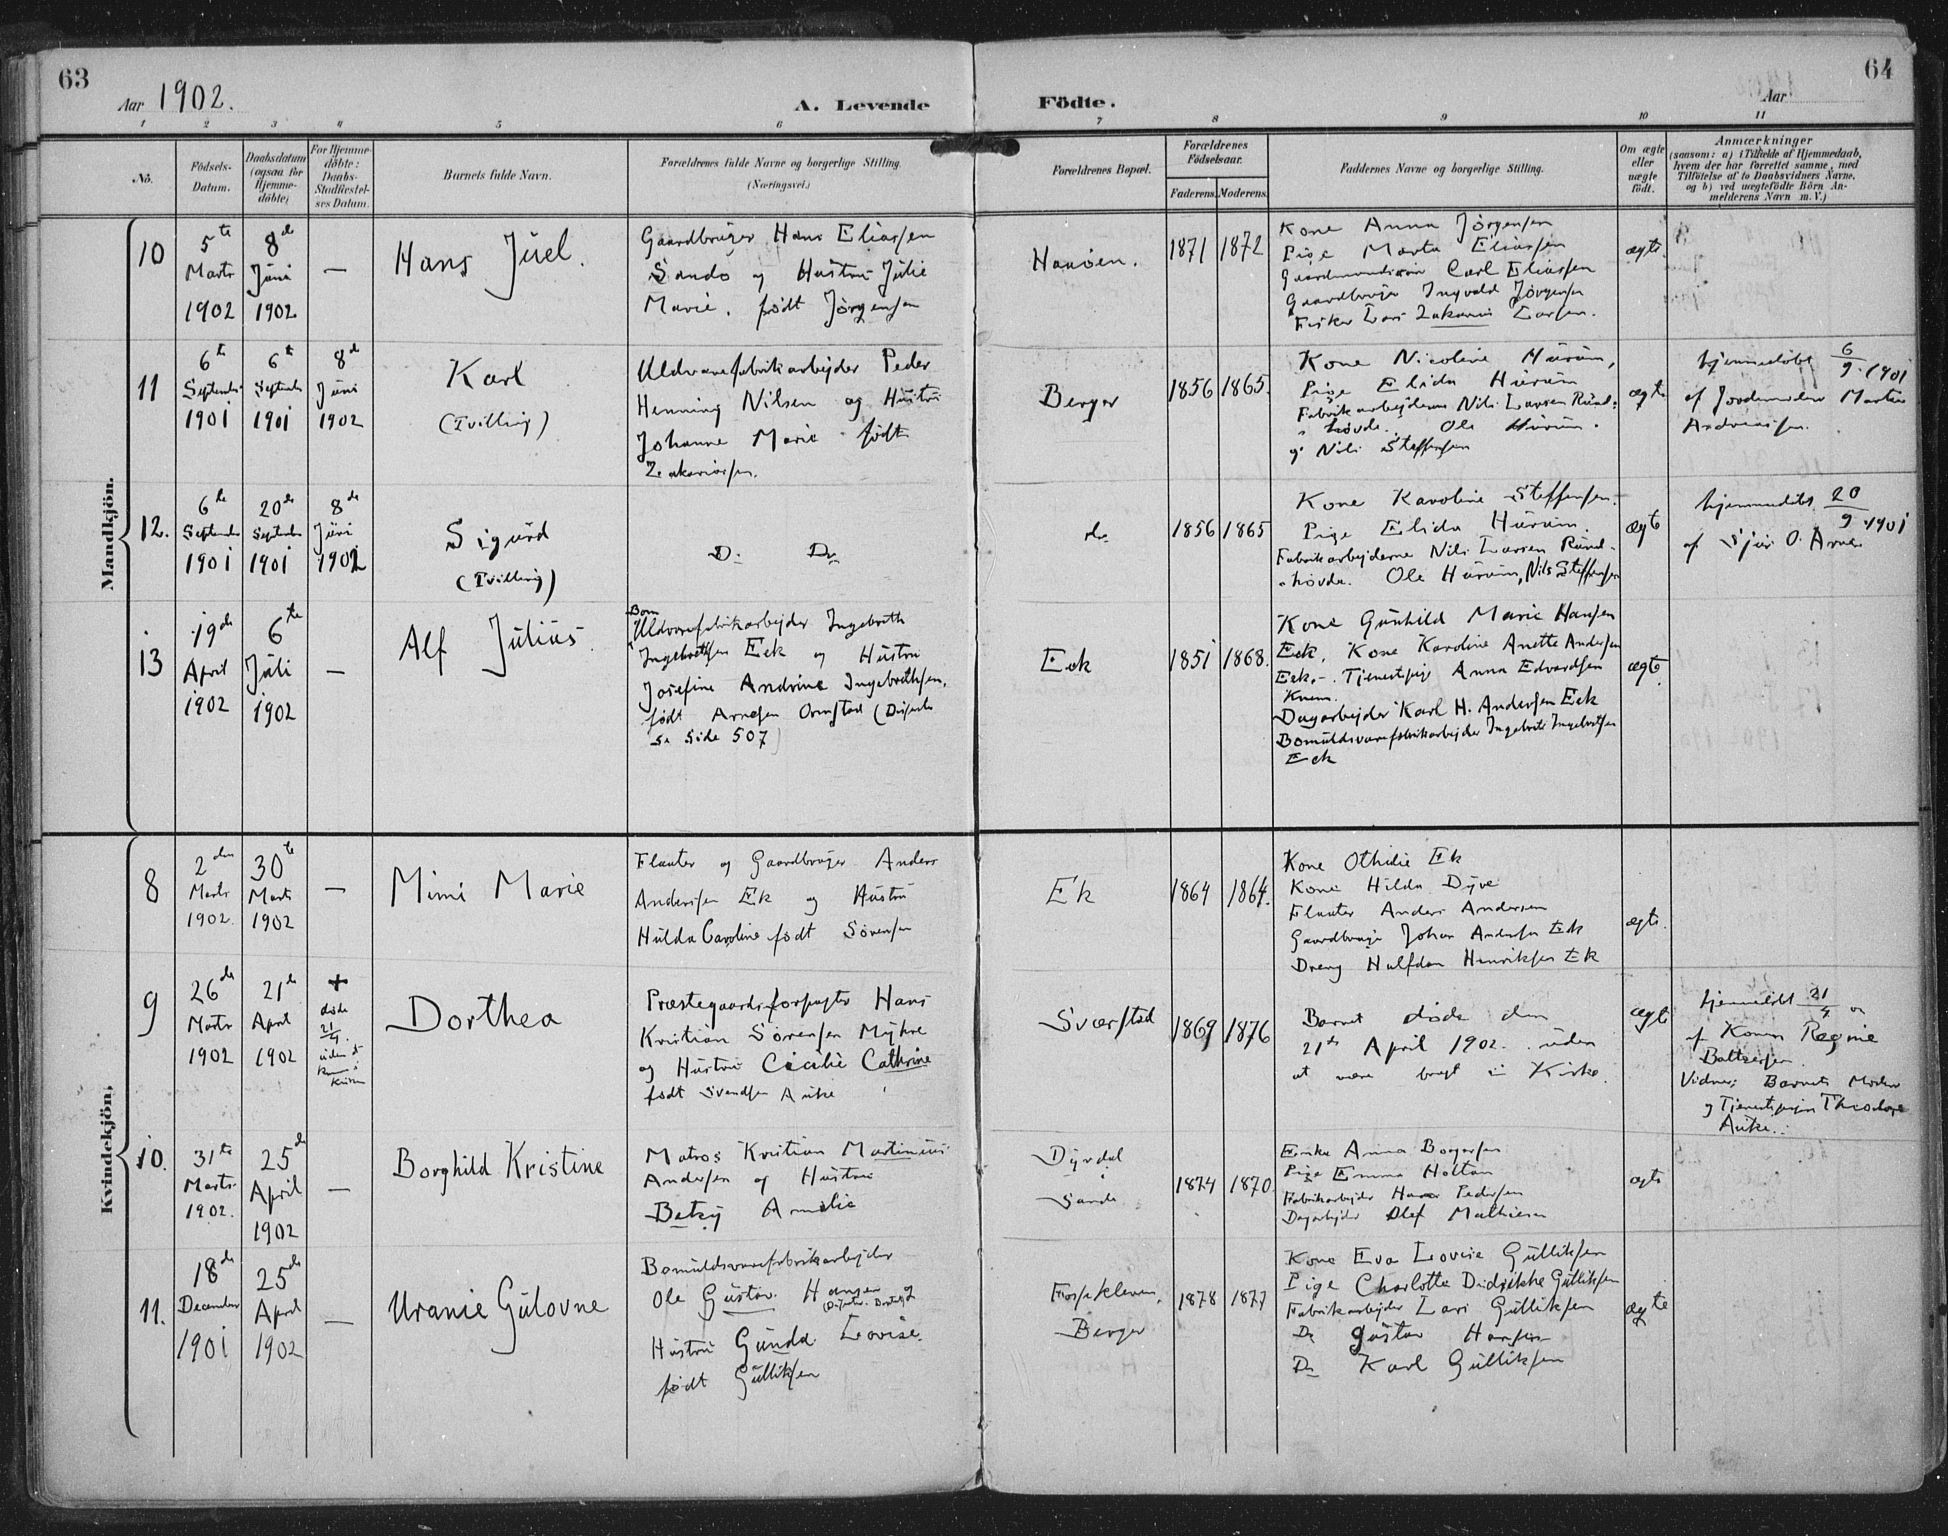 63
Aar 1902.
A. Levende
Födte.
Aar
64
1 2 3 4 5 6 7 8 9 10 11
No.
Födsels-
Datum.
Daabsdatum
(ogsaa for
Hjemme-
döbte)
For Hjemme-
döbte:
Daabs-
Stadfæstel-
ses Datum.
Barnets fulde Navn.
Forældrenes fulde Navne og borgerlige Stilling.
(Næringsvei.)
Forældrenes Bopæl.
Forældrenes
Födselsaar.
Faderens. Moderens.
Faddernes Navne og borgerlige Stilling.
Om ægte
eller
uægte
födt.
Anmærkninger
(saasom: a) i Tilfælde af Hjemmedaab,
hvem der har forrettet samme, med
Tilföielse af to Daabsvidners Navne,
og b) ved uægtefödte Börn An-
melderens Navn m. V.)
Mandkjön.
10
5te
Marts
1902
8de
Juni
1902
—
Hans Juel.
Gaardbruger Hans Eliassen
Sando og Hustru Julie
Marie, født Jørgensen
1871 1872
Kone Anna Jørgensen
Pige Marta Eliassen
Carl Eliassen
Gaardbruger Ingvald Jørgensen
Fisker Lars Zakarias Larsen.
ægte
11
6te
September
1901
6te
September
1901
8de
Juni
1902
Karl
(Tvilling)
Uldvarefabrikarbejder Peder
Henning Nilsen og Hustru
Johanne Marie født
Zakariassen.
Berger
1856 1865.
Kone Nicoline Hurum,
Pige Elida Hurum
Fabrikarbejderne Nils Larsen Rund-
høvde. Ole Hurum.
og Nils Steffensen
ægte
hjemmedøbt 6/9 1901
af Jordemoder Martea
Andreassen.
12.
6te
September
1901
20de
September
1901
8de
Juni
1902
Sigurd
(Tvilling)
Do Do
do
1856 1865
Kone Karoline Steffensen.
Pige Elida Hurum.
Fabrikarbejderne Nils Larsen Rund-
høvde. Ole Hurum, Nils Steffensen
ægte
hjemmedøbt 20/9 1901
af
13
19de
April
1902
6te
Juli
1902
—
Alf Julius
Bom
Uldvarefabrikarbejder Ingebreth
Ingebrethsen Eek og Hustru
Josefine Andrine Ingebrethsen,
født Arnesen Ormstad (
se Side 507)
Eek
1851 1868.
Kone Gunhild Marie Hansen
Eek, Kone Karoline Anette Andersen
Eek,-. Tjenestpige Anna Edvardsen
Knem.
Dagarbejder Karl H. Andersen Eek
Bomuldsvarefabrikarbejder Ingebret Ingebretsen
Eek
ægte
Kvindekjön.
8
2den
Marts
1902.
30te
Marts
1902
—
Mimi Marie
Fløter og Gaardbruger Anders
Andersen Ek og Hustru
Hulda Caroline født Sørensen
Ek
1864 1864.
Kone Othilie Ek
Kone Hilda Dyve
Fløter Anders Andersen
Gaardbruger Johan Andersen Eek
Dreng Halfdan Henriksen Ek
ægte
9
26de
Marts
1902
21de
April
1902
+
døde
21/4.
uden at
Dorthea
Præstegaardsforpagter Hans
Kristian Sørensen Myhre
og Hustru Cicilie Cathrine
født Svendsen Auke
Sværstad
1869 1876
Barnet døde den
21de April 1902. uden
at være bragt i Kirke.
ægte
hjemmedøbt 21/4
af Konen Regine
Baltzersen.
Vidner; Barnets Moder
og Tjenestepigen Theodora
Auke.
10.
31te
Marts
1902.
25de
April
1902
—
Borghild Kristine
Matros Kristian Martinius
Andersen og Hustru
Betsy Amalie
Dyrdal
Sande
1874 1870
Enke Anna Borgersen
Pige Emma Holtan
Fabrikarbejder Hans Pedersen
Dagarbejder Olef Mathisen
ægte
11.
18de
December
1901
25de
April
1902
—
Uranie Gulovne
Bomuldsvarefabrikarbejder
Ole Gustav Hansen
og
Hustru Gunda Lovise.
født Gulliksen
Fossekleven,
Berger
1878 1877
Kone Eva Lovise Gulliksen
Pige Charlotte Didrikke Gulliksen
Fabrikarbejder Lars Gulliksen
Do Gustav Hansen
Do Karl Gulliksen
ægte